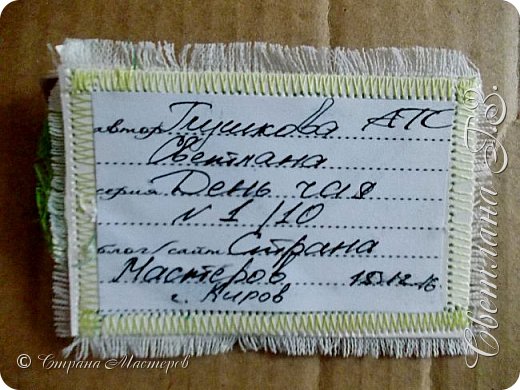 автор Глушкова АТС
Светлана
серия День чая
N 1/10
блог/сайт Страна
Мастеров 15.12.16
г. Киров
© Страна Мастеров
Светлана Г.В.